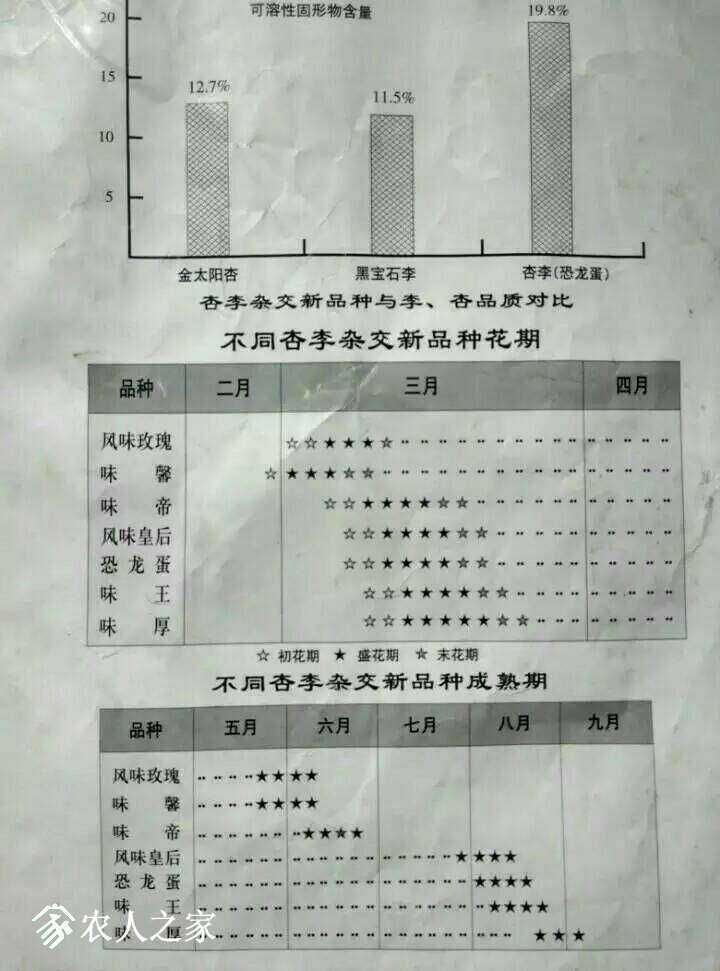 可溶性固形物含量
20
15
10
5
12.7%
11.5%
19.8%
金太阳杏 黑宝石李 杏李(恐龙蛋)
杏李杂交新品种与李、杏品质对比
不同杏李杂交新品种花期
品种 二月 三月 四月
风味玫瑰 ☆☆★★★☆
味馨 ☆★★★☆☆
味帝 ☆☆★★★★☆☆
风味皇后 ☆☆★★★★☆☆
恐龙蛋 ☆☆★★★★☆☆
味王 ☆☆★★★★☆☆
味厚 ☆☆★★★★★☆☆
☆ 初花期 ★ 盛花期 ☆ 末花期
不同杏李杂交新品种成熟期
品种 五月 六月 七月 八月 九月
风味玫瑰 ★★★★
味馨 ★★★★
味帝 ★★★★
风味皇后 ★★★★
恐龙蛋 ★★★★
味王 ★★★★
味厚 ★★★
农人之家